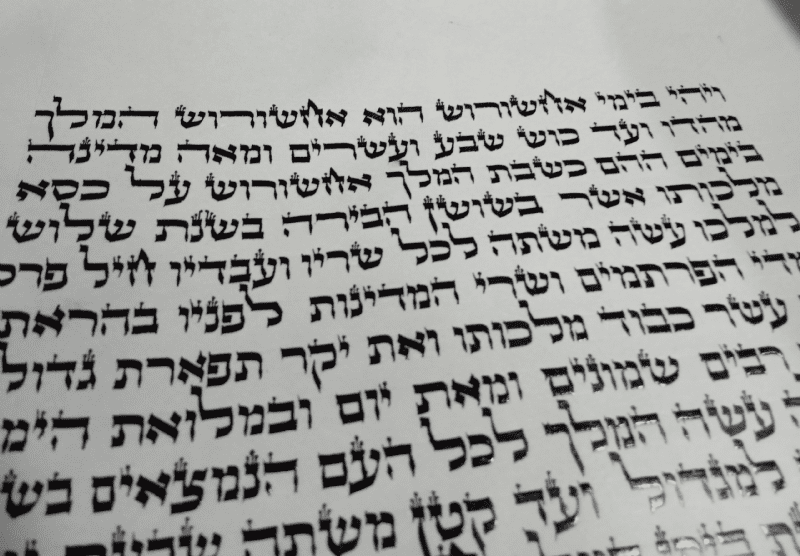 ויהי בימי אחשורוש הוא אחשורוש המלך
מהדו ועד כוש שבע ועשרים ומאה מדינה
בימים ההם כשבת המלך אחשורוש על כסא
מלכותו אשר בשושן הבירה בשנת שלוש
למלכו עשה משתה לכל שריו ועבדיו חיל פרס
מדי הפרתמים ושרי המדינות לפניו בהראת
עשר כבוד מלכותו ואת יקר תפארת גדול
רבים שמונים ומאת יום ובמלואת הימ
ה עשה המלך לכל העם הנמצאים בש
למגדול ועד קטן משתה שבעת